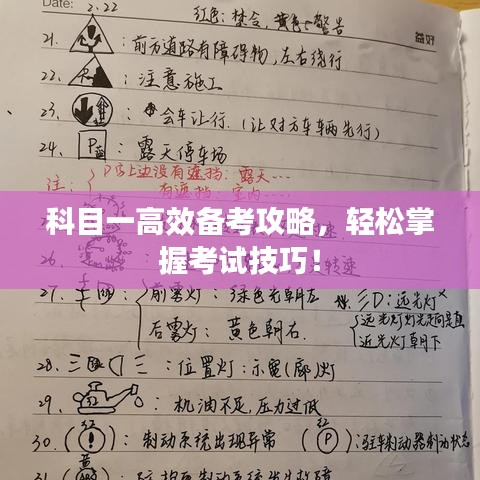 Date: 2.22
红色:禁令,黄色→警告
益好
21、:前方道路有障碍物,左右绕行
22、:注意施工
23、:会车让行.(让对方车辆先行)
24、P:露天停车场
注:P字上边没有遮挡:露天…
有遮挡:室内…
科目一高效备考攻略,轻松掌
握考试技巧!
转速
27、前雾灯:绿色光朝左
D:远光灯
远光灯灯光走向是直
后雾灯:黄色朝右.
近光灯朝下
28、:位置灯:示宽(廓)灯
29、:机油不足,压力过低
30、红(!):制动系统出现异常
红(P):驻车制动器制动状态
31、黄